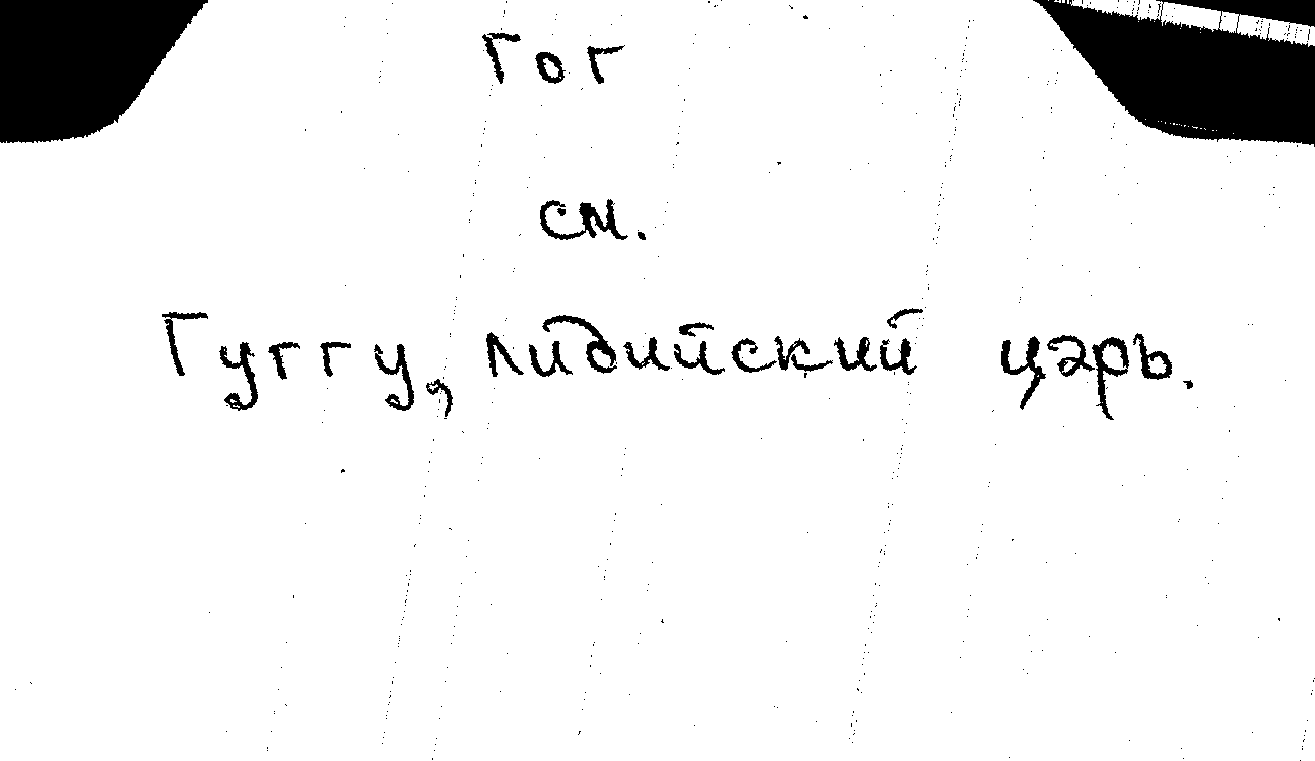 Гог
см.
Гуггу, лидийский царь.